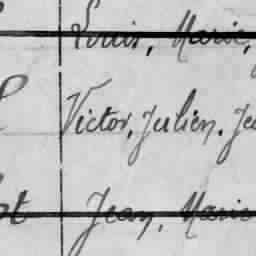 Louis, Marie,
Victor, Julien, Je
Jean, Marie